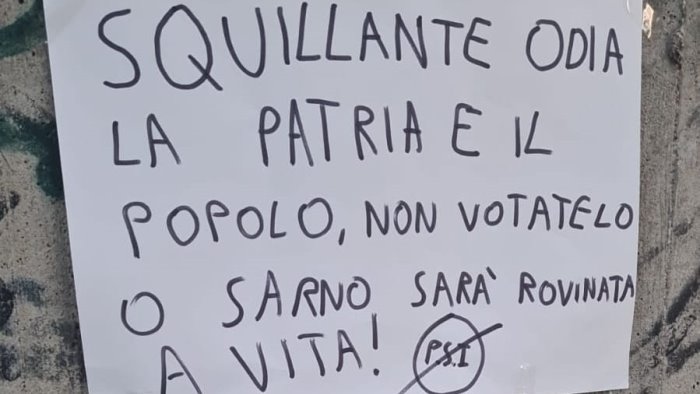 SQUILLANTE ODIA
LA PATRIA E IL
POPOLO, NON VOTATELO
O SARNO SARÀ ROVINATA
A VITA! P.S.I